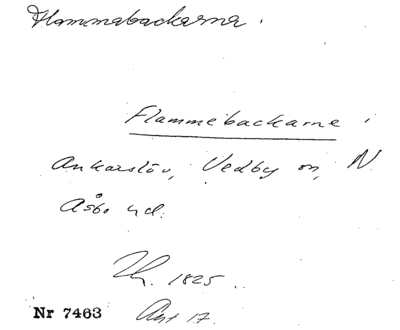 Flammabackarna.
Flammebackarne i
Ankarslöv, Vedby sn, N.
Åsbo hd.
1825.
Nr 7463 Akt 17.